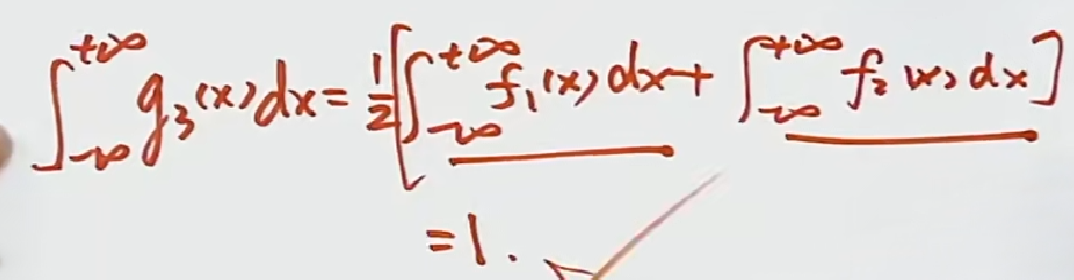 ∫_{-∞}^{+∞} g₃(x)dx = 1/2 [∫_{-∞}^{+∞} f₁(x)dx + ∫_{-∞}^{+∞} f₂(x)dx]
=1.